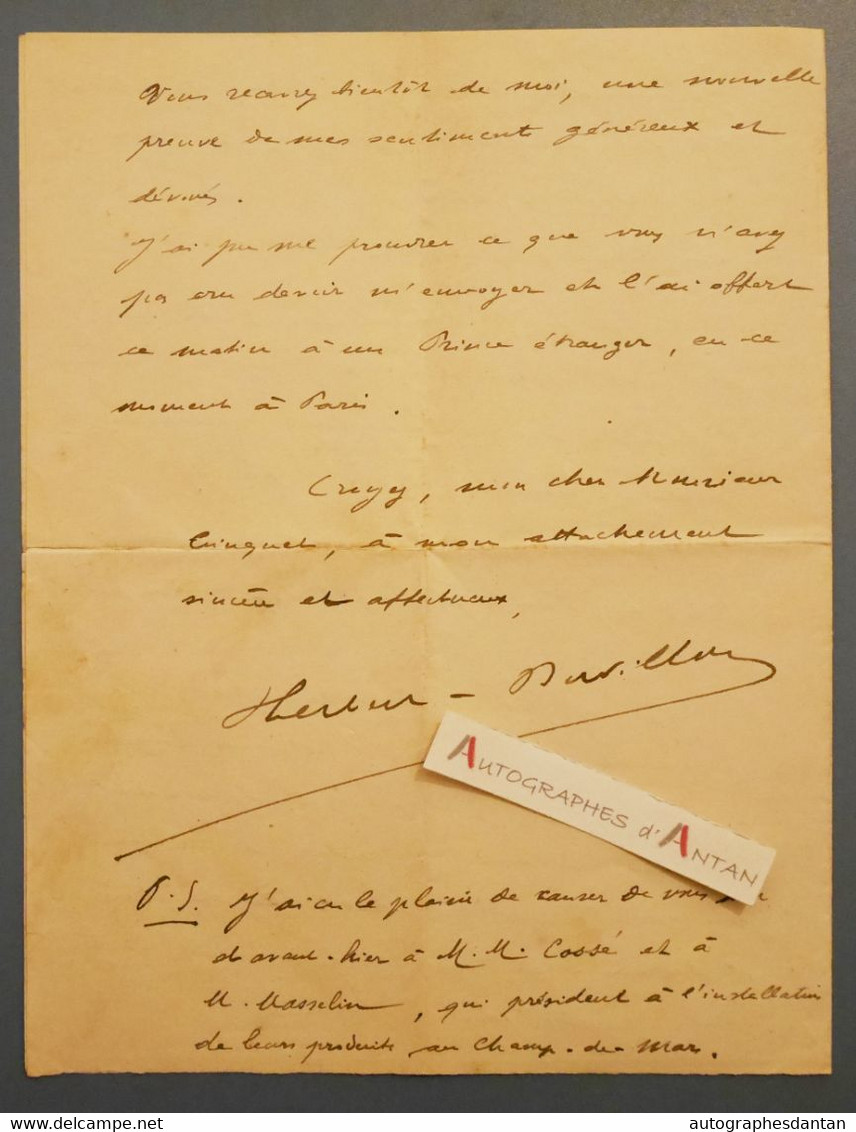 Vous recevrez bientôt de moi, une nouvelle
preuve de mes sentiments généreux et
dévoués.
J'ai pu me procurer ce que vous n'avez
pas cru devoir m'envoyer et l'ai offert
ce matin à un Prince étranger, en ce
moment à Paris.
Croyez, mon cher Monsieur
à mon attachement
sincère et affectueux,
AUTOGRAPHES d'ANTAN
P.S. J'ai eu le plaisir de causer de vous
avant-hier à M.M. Cossé et à
M. Masselin, qui président à l'installation
de leurs produits au Champ-de-Mars.
Delcampe.net
autographesdantan